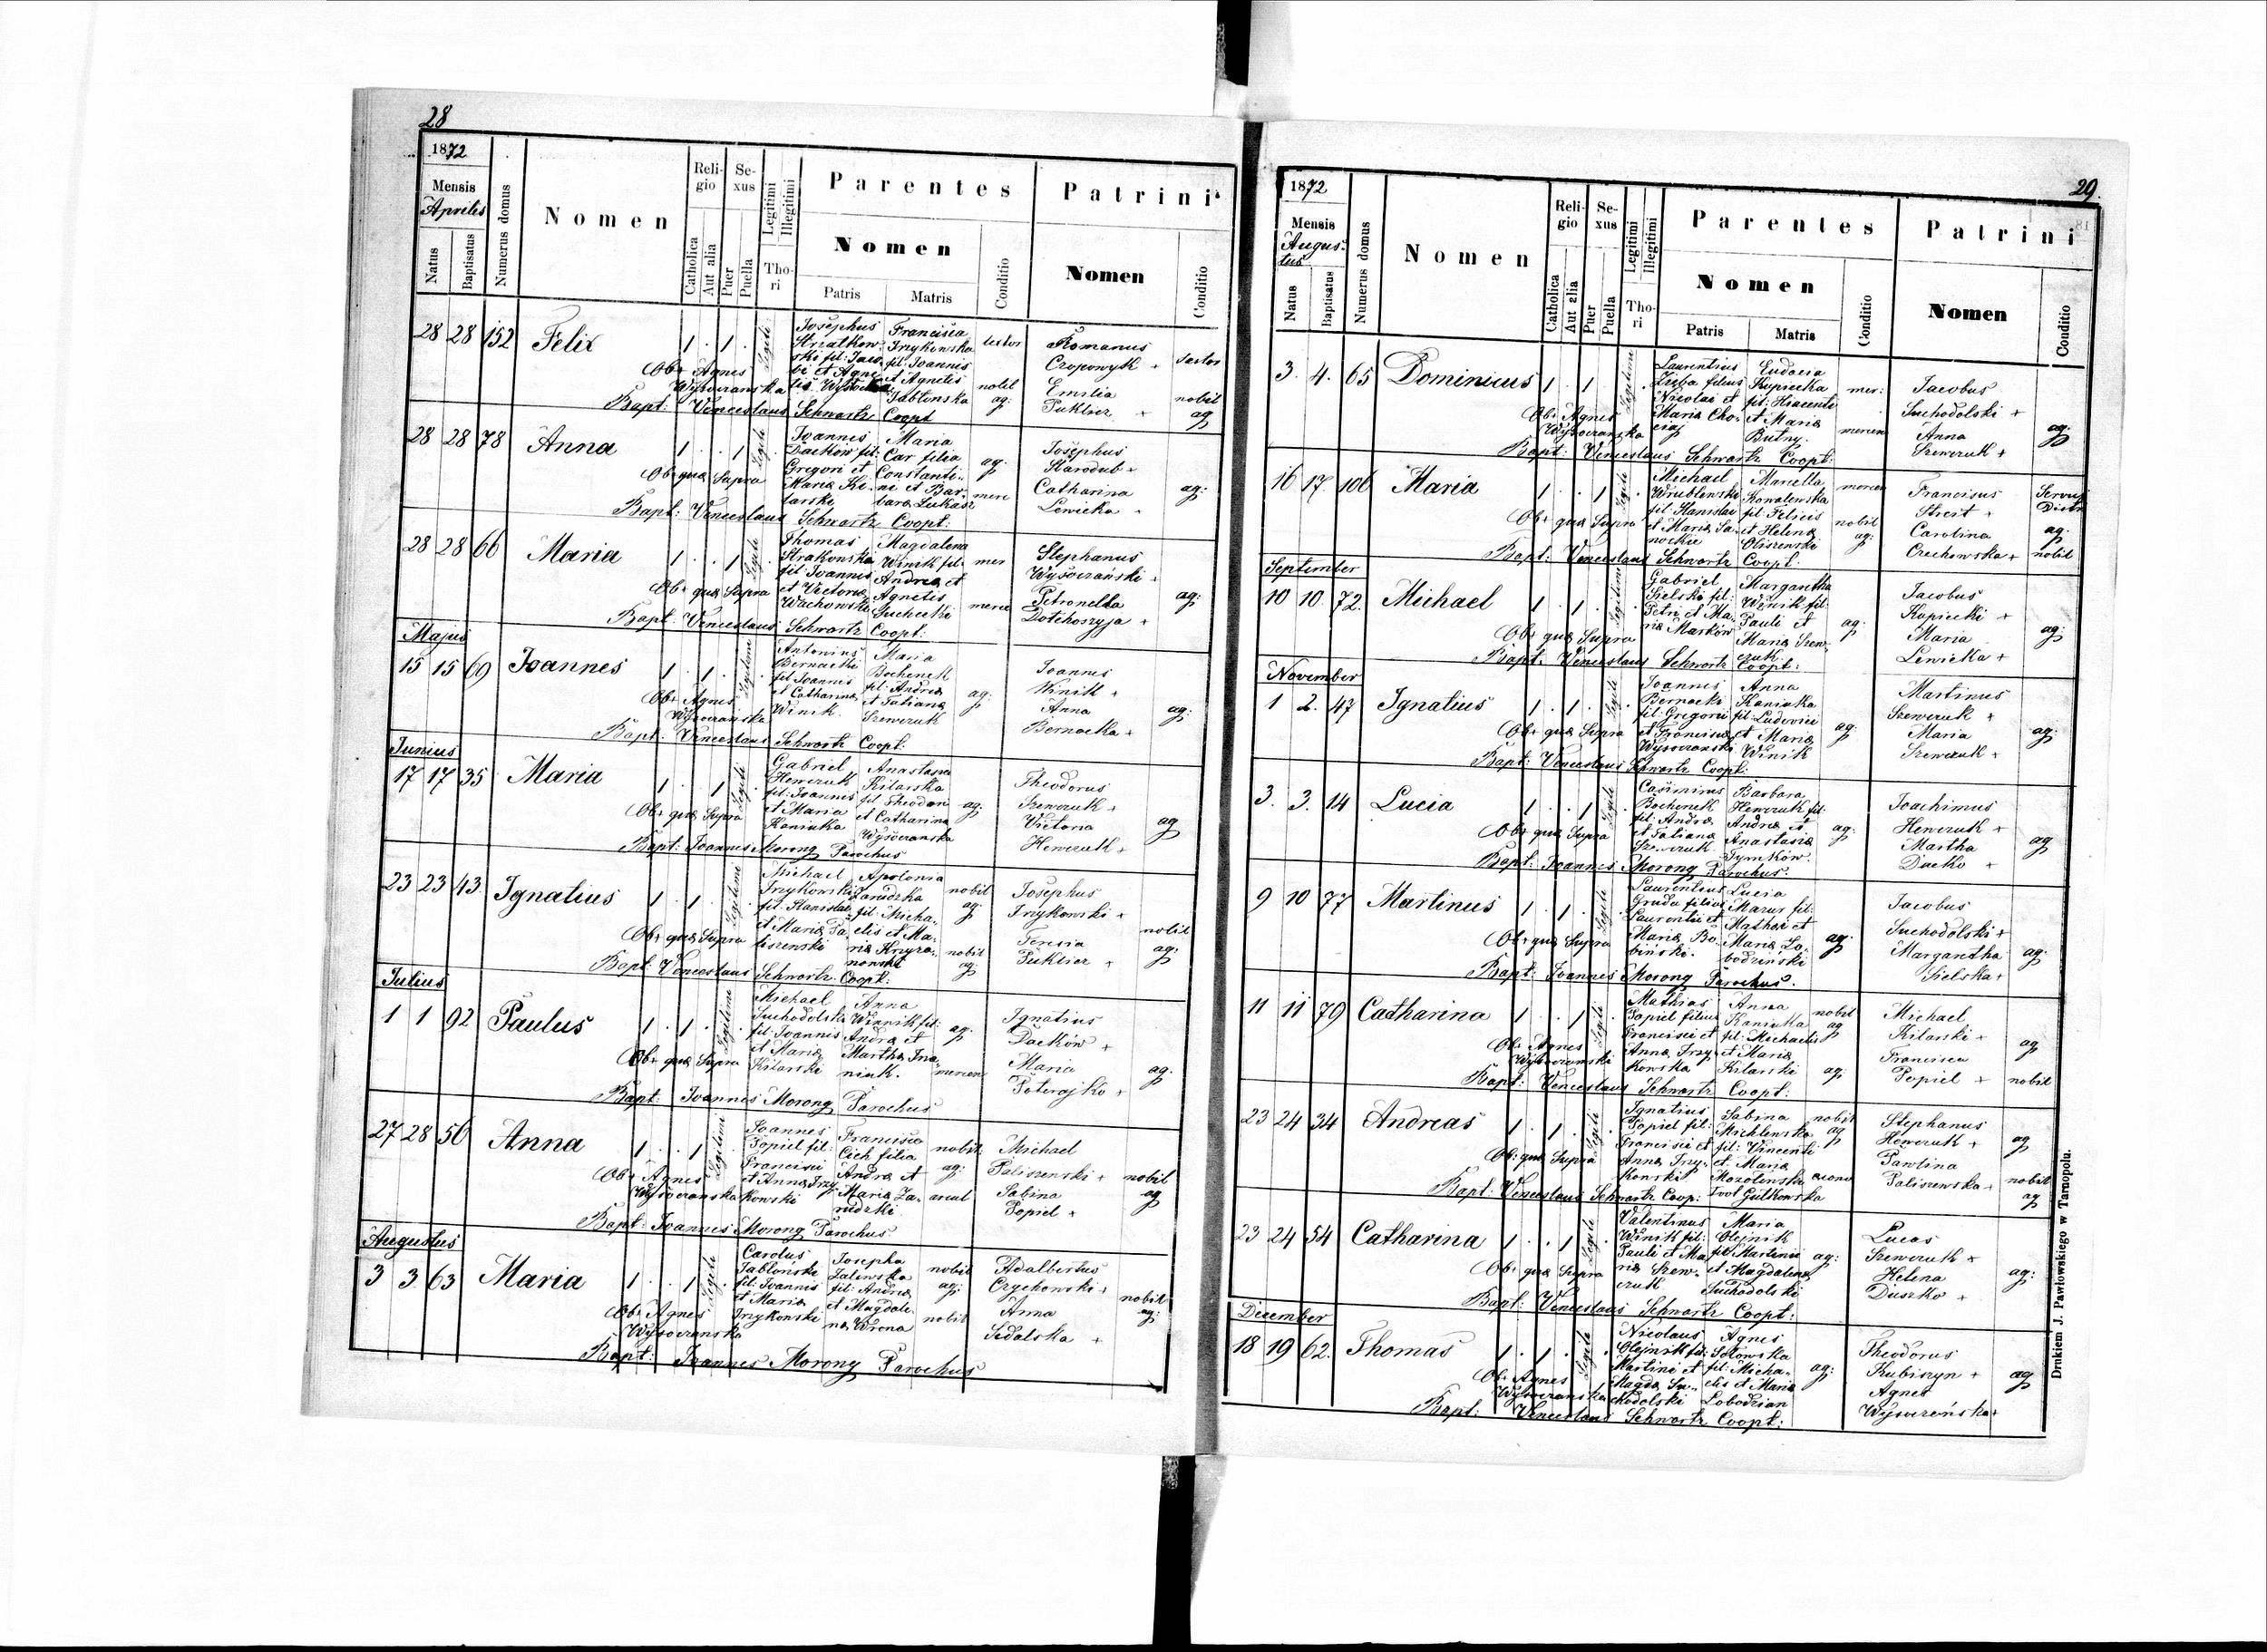 28
1872
Mensis
Aprilis
Natus
Baptisatus
Numerus domus
Nomen
Religio
Catholica
Aut alia
Sexus
Puer
Puella
Legitimi
Illegitimi
Thori
Parentes
Nomen
Patris
Matris
Conditio
Patrini
Nomen
Conditio
28 28 152 Felix 1 . 1 . Legiti
Josephus Francisca textor Romanus
fil: Joannis Czopowyk + textor
Ob+ Agnes et Agnetis nobil Emilia nobil
Wysoczanska Jabłonska ag: Puklicz + ag
Bapt: Venceslaus Schwartz Coopt
28 28 78 Anna 1 . . 1 Legiti
Joannes Maria Josephus
Dackow fil: Car filia ag: Starodub +
Ob+ quæ Supra Gregori et Constanti- Catharina ag:
Maria Ki- ni et Bar- mere Lewicka +
larski bara Łukasz
Bapt: Venceslaus Schwartz Coopt:
28 28 66 Maria 1 . . 1 Legiti
Thomas Magdalena Stephanus
Strakonski Winik fil: mer Wysoczański +
fil: Joannis Andrea et
Ob+ quæ Supra et Victoria Agnetis Petronella ag:
Wachowski Suchecki merce Dotchoszyja +
Bapt: Venceslaus Schwartz Coopt:
Majus
15 15 69 Joannes 1 . 1 . Legitimi
Antonius Maria Joannes
Bernacki Bochenek Winik +
fil Joannis fil: Andrea
Ob+ Agnes et Catharina et Tatiana ag: Anna ag:
Wysoczańska Winik. Szewczuk Bernacka +
Bapt: Venceslaus Schwartz Coopt:
Junius
17 17 35 Maria 1 . . 1 Legiti
Gabriel Anastasia Theodorus
Hewczuk Kilarska Szewczuk +
fil: Joannis fil Theodori ag:
Ob+ quæ Supra et Maria et Catharina Victoria ag
Kaniuka Wysoczanska Hewczuk +
Bapt: Joannes Morong Parochus
23 23 43. Ignatius 1 . 1 . Legitimi
Michael Apolonia nobil Josephus
Trzykowski Zarudzka ag: Trzykowski +
fil: Stanislai fil: Micha-
Ob+ quæ Supra et Maria Pa- elis et Ma- Teresia nobil
liszenski ria nobil Puklicz + ag:
Bapt: Venceslaus Schwartz Coopt:
Julius
1 1 92 Paulus 1 . 1 . Legitimi
Michael Anna Ignatius
Suchodolski Winnik fil: ag: Dackow +
fil: Joannis Andrea et
Ob+ quæ Supra et Maria Martha Maria ag:
Kilarski niuk. mercen Poterajko +
Bapt: Joannes Morong Parochus
27 28 56 Anna 1 . . 1 Legitimi
Joannes Francisca nobil: Michael
Popiel fil: Cich filia Paliszenski + nobil
Francisci Andrea et ag:
Ob+ Agnes et Anna Trzy- Maria Za- Sabina ag
Wysoczanska kowski rudzki Popiel +
Bapt: Joannes Morong Parochus
Augustus
3 3 63 Maria 1 . . 1 Legiti
Carolus Josepha nobil Adalbertus
Jabłoński Zalewska Czychowski + nobil
fil: Joannis fil: Andrea ag:
Ob+ Agnes et Maria et Magdale- Anna ag:
Wysoczanska Trzykonski na Wrona nobil Sidalska +
Bapt: Joannes Morong Parochus
29.
1872
Mensis
Augustus
Natus
Baptisatus
Numerus domus
Nomen
Religio
Catholica
Aut alia
Sexus
Puer
Puella
Legitimi
Illegitimi
Thori
Parentes
Nomen
Patris
Matris
Conditio
Patrini
Nomen
Conditio
3. 4. 65 Dominicus 1 . 1 . Legitimi
Laurentius Eudocia Jacobus
Ziiba filius Kopiecka mer: Suchodolski +
Nicolai et fil: Hiacenti
Ob+ Agnes Maria Cho- et Maria mercen Anna ag:
Wysoczanska ciaj Butny. Szewczuk +
Bapt: Venceslaus Schwartz Coopt:
16 17. 106 Maria 1 . . 1 Legiti
Michael Marcella mercen Francisus Servus
Wrublewski Kowalewska Streit +
fil: Stanislai fil: Felicis nobil
Ob+ quæ Supra et Maria Sa- et Helena ag: Carolina ag:
nockie Oliszewski Czechowska + nobil
Bapt: Venceslaus Schwartz Coopt:
September
10 10. 72. Michael 1 . 1 . Legitimi
Gabriel Margaretha Jacobus
Sielski fil: Winik fil: Kopiecki +
Petri et Ma- Pauli et ag:
Ob+ quæ Supra ria Marków Maria Szew- Maria ag:
czuk Lewicka +
Bapt: Venceslaus Schwartz Coopt:
November
1 2. 47 Ignatius 1 . 1 . Legiti
Joannes Anna Martinus
Bernacki Kaniuka Szewczuk +
fil: Gregorii fil: Ludovici
Ob+ quæ Supra et Francisca et Maria ag: Maria ag:
Wysoczanski Winik Szewczuk +
Bapt: Venceslaus Schwartz Coopt:
3. 3. 14 Lucia 1 . . 1 Legiti
Casimirus Barbara Joachimus
Bochenek Hewczuk fil: Hewczuk +
fil: Andrea Andrea et
Ob+ quæ Supra et Tatiana Anastasia ag: Martha ag
Szewczuk Tymków Dacko +
Bapt: Joannes Morong Parochus:
9 10 77 Martinus 1 . 1 . Legiti
Laurentius Lucia Jacobus
Gruda filius Mazur fil: Suchodolski +
Laurentii et Mathei et
Ob+ quæ Supra Maria Bo- Maria Lo- ag: Margaretha ag:
biński. bodziński Sielska +
Bapt: Joannes Morong Parochus.
11 11 79 Catharina 1 . . 1 Legiti
Mathias Anna nobil Michael
Popiel filius Kaniuka ag Kilarski +
Francisci et fil: Michaelis
Ob+ Agnes Anna Trzy- et Maria Francisca ag
Wysoczanski kowska Kilarski ag: Popiel + nobil
Bapt: Venceslaus Schwartz Coopt:
23 24 34 Andreas 1 . 1 . Legiti
Ignatius Sabina nobil Stephanus
Popiel fil: Michlewska ag Hewczuk + ag
Francisci et fil: Vincenti
Ob: quæ Supra Anna Trzy- et Maria Pawlina
konski Mozolewska Paliszewska + nobil
ag
Bapt: Venceslaus Schwartz Coop: Gutkowska
23 24 54 Catharina 1 . . 1 Legiti
Valentinus Maria Lucas
Winik fil: Olejnik Szewczuk +
Pauli et Ma- fil Martini ag:
Ob+ quæ Supra ria Szew- et Magdalena Helena ag:
czuk Suchodolski Duszko +
Bapt: Venceslaus Schwartz Coopt:
December
18 19 62. Thomas 1 . 1 . Legiti
Nicolaus Agnes Theodorus
Olejnik fil: Sołowska Kubiszyn +
Martini et fil: Micha- ag:
Ob: Agnes Magda Su- elis et Maria Agnes ag
Wysoczanska chodolski Lobodzian Wysoczońska +
Bapt: Venceslaus Schwartz Coopt:
Drukiem J. Pawłowskiego w Tarnopolu.